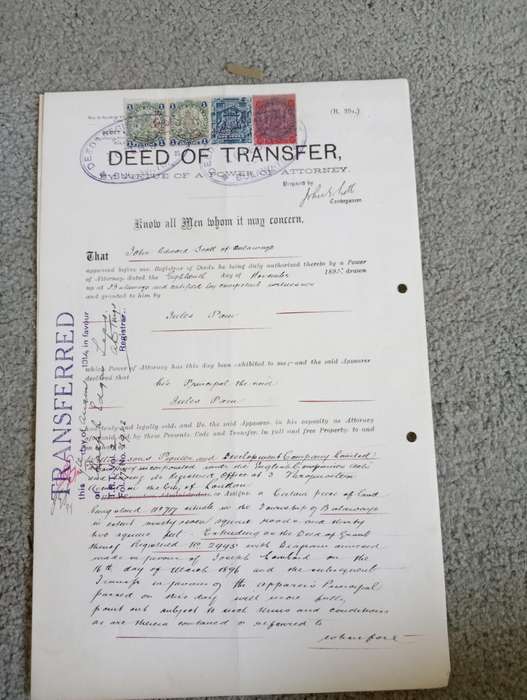 (R. 99a.)
DEED OF TRANSFER,
BY VIRTUE OF A POWER OF ATTORNEY.
Prepared by
John E. Scott
Conveyancer.
Know all Men whom it may concern,
That John Edward Scott of Bulawayo
appeared before me, Registrar of Deeds he being duly authorized thereto by a Power
of Attorney, dated the Eighteenth day of November 189 drawn
up at Bulawayo and certified by competent witnesses
and granted to him by
Jules Paux
which Power of Attorney has this day been exhibited to me; and the said Appearer
declared that his Principal the said
Jules Paux
truly and legally sold, and He, the said Appearer, in his capacity as Attorney
did by these Presents, Cede and Transfer, in full and free Property, to and
and Development Company Limited
incorporated under the English Companies Acts
its Registered office at 3 Throgmorton
in the City of London
a Certain piece of land
being Stand No 777 situate in the Township of Bulawayo
in extent ninety seven square Roods and thirty
two square feet Extending as the Deed of Grant
thereof Registered No 2945 with Diagram annexed
made in favour of Joseph on the
16th day of March 1896 and the subsequent
Transfer in favour of the Appearer's Principal
passed on this day will more fully
point out subject to such terms and conditions
as are therein contained or referred to
Wherefore
TRANSFERRED
this day of August 1914 in favour
of
T.R.T. Vol.
Folio No.
Registrar.